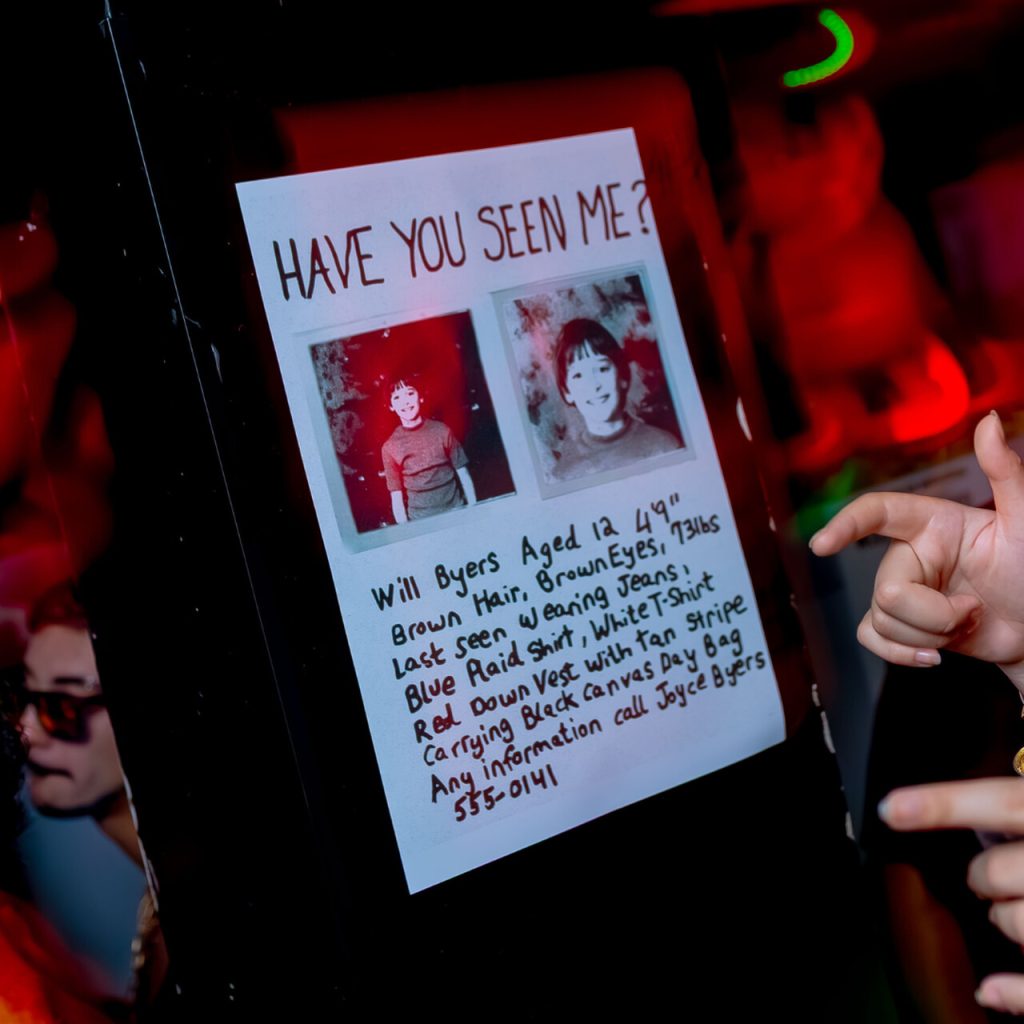 HAVE YOU SEEN ME?
Will Byers Aged 12 4'9"
Brown Hair, Brown Eyes, 73lbs
Last Seen Wearing Jeans,
Blue Plaid Shirt, White T-Shirt
Red Down Vest with Tan Stripe
Carrying Black Canvas Day Bag
Any information call Joyce Byers
555-0141